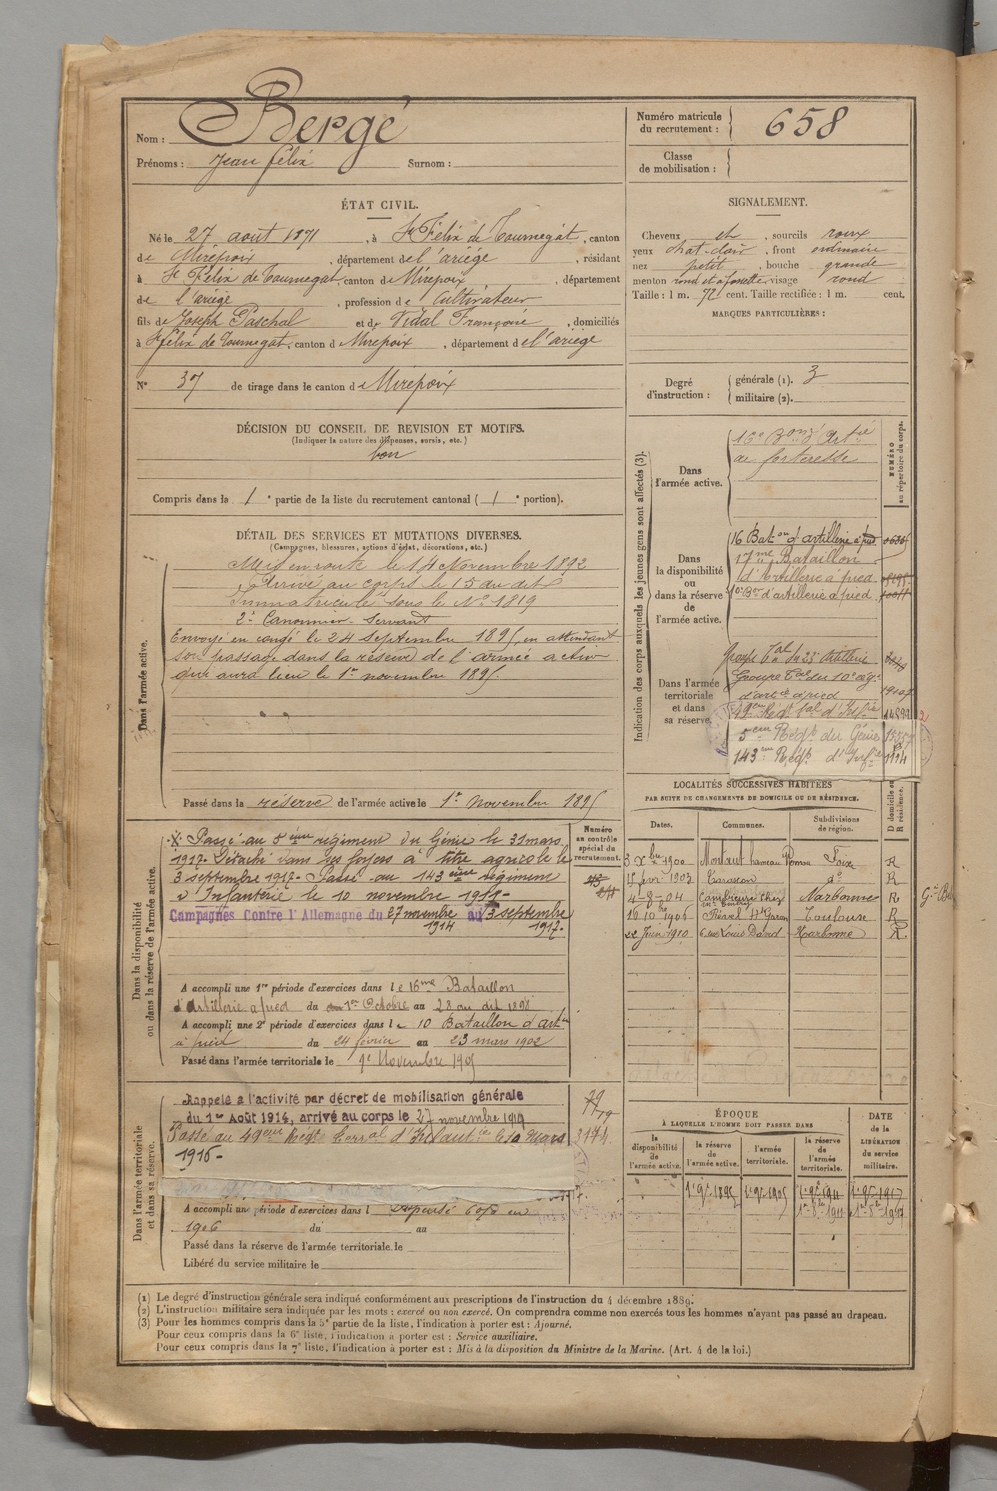 Nom : Bergé
Prénoms : Jean Félix Surnom :
Numéro matricule du recrutement : 658
Classe de mobilisation :
ÉTAT CIVIL.
Né le 27 août 1871, à St Félix de Tournegat, canton
de Mirepoix, département de l'ariège, résidant
à St Félix de Tournegat, canton de Mirepoix, département
de l'ariège, profession de Cultivateur
fils de Joseph Paschal et de Vidal Françoise, domiciliés
à St félix de Tournegat, canton d Mirepoix, département de l'ariège
N° 37 de tirage dans le canton de Mirepoix
SIGNALEMENT.
Cheveux et, sourcils roux
yeux chat-clair, front ordinaire
nez petit, bouche grande
menton rond et à fossette, visage rond
Taille : 1 m. 72 cent. Taille rectifiée : 1 m. cent.
MARQUES PARTICULIÈRES :
Degré d'instruction : générale (1). 3
militaire (2).
DÉCISION DU CONSEIL DE REVISION ET MOTIFS.
(Indiquer la nature des dispenses, sursis, etc.)
bon
Compris dans la 1e partie de la liste du recrutement cantonal (1e portion).
DÉTAIL DES SERVICES ET MUTATIONS DIVERSES.
(Campagnes, blessures, actions d'éclat, décorations, etc.)
Dans l'armée active.
Mis en route le 14 Novembre 1892
Arrivé au corps le 15 du dit
Immatriculé sous le N° 1819
2e Canonnier Servant
Envoyé en congé le 24 septembre 1895, en attendant
son passage dans la réserve de l'armée active
qui aura lieu le 1er novembre 1895.
Passé dans la réserve de l'armée active le 1er novembre 1895
Indication des corps auxquels les jeunes gens sont affectés (3).
NUMÉRO au répertoire du corps.
Dans l'armée active.
16e Bon d'Artie
de forteresse
Dans la disponibilité ou dans la réserve de l'armée active.
16 Bat on d'artillerie à pied
17me Bataillon
d'Artillerie à pied
10e Bon d'artillerie à pied
Dans l'armée territoriale et dans sa réserve.
Groupe tal du 23e Artillerie
Groupe tal du 10e rgt
d'artie à pied
49eme Regt tal d'Infie
5eme Regt du Génie
143eme Regt d'Infie
Dans la disponibilité ou dans la réserve de l'armée active.
Numéro au contrôle spécial du recrutement.
Passé au 5ème régiment du Génie le 31 mars
1917. Détaché dans ses foyers à titre agricole le
3 septembre 1917. Passé au 143ème régiment
d'Infanterie le 10 novembre
Campagnes Contre l'Allemagne du 27 novembre 1914 au 3 septembre 1917.
A accompli une 1re période d'exercices dans le 16me Bataillon
d'Artillerie à pied du 1er Octobre au 28 au dit 1898
A accompli une 2e période d'exercices dans le 10 Bataillon d'artie
à pied du 24 février au 23 mars 1902
Passé dans l'armée territoriale le 1er Novembre 1905
LOCALITÉS SUCCESSIVES HABITÉES
PAR SUITE DE CHANGEMENTS DE DOMICILE OU DE RÉSIDENCE.
Dates. Communes. Subdivisions de région. D domicile ou R résidence.
3 Xbre 1900 Montaut hameau Foix R
15 févr 1903 Tarascon do R
4-8-04 Narbonne R
16 10bre 1906 Revel Hte Garon Toulouse R
22 Juin 1910 6 rue Louis David Narbonne R
Dans l'armée territoriale et dans sa réserve.
Rappelé à l'activité par décret de mobilisation générale
du 1er Août 1914, arrivé au corps le 27 novembre 1914
Passé au 49eme Regt Terral d'Infantie le 10 Mars
1916-
3174
A accompli une période d'exercices dans l Dispensé en
1906 du au
Passé dans la réserve de l'armée territoriale le
Libéré du service militaire le
ÉPOQUE
À LAQUELLE L'HOMME DOIT PASSER DANS
la disponibilité de l'armée active. la réserve de l'armée active. l'armée territoriale. la réserve de l'armée territoriale.
DATE de la LIBÉRATION du service militaire.
1er 9bre 1895 1er 9bre 1905 1er 9bre 1911 1er 9bre 1917
(1) Le degré d'instruction générale sera indiqué conformément aux prescriptions de l'instruction du 4 décembre 1889.
(2) L'instruction militaire sera indiquée par les mots : exercé ou non exercé. On comprendra comme non exercés tous les hommes n'ayant pas passé au drapeau.
(3) Pour les hommes compris dans la 5e partie de la liste, l'indication à porter est : Ajourné.
Pour ceux compris dans la 6e liste, l'indication à porter est : Service auxiliaire.
Pour ceux compris dans la 7e liste, l'indication à porter est : Mis à la disposition du Ministre de la Marine. (Art. 4 de la loi.)